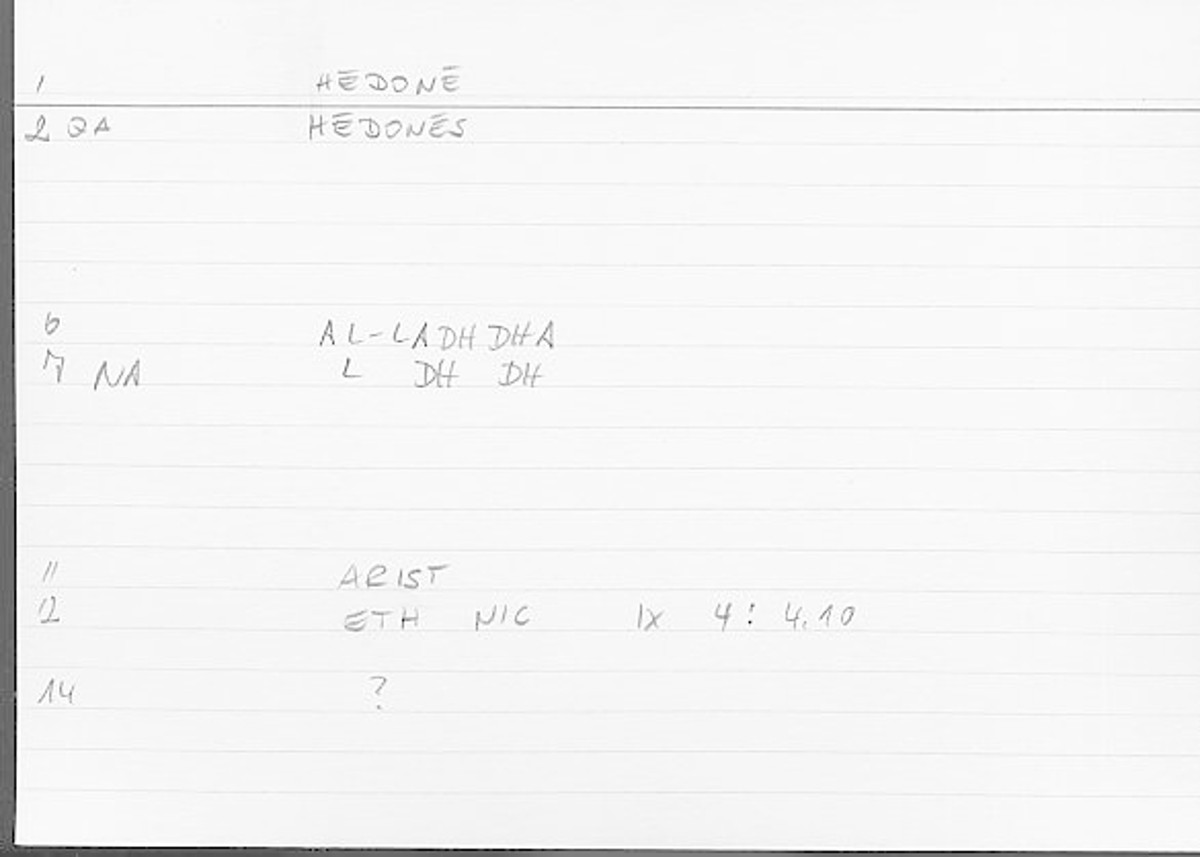 1 HĒDONĒ
2 QA HĒDONĒS
6 AL-LADHDHA
7 NA L DH DH
11 ARIST
12 ETH NIC IX 4: 4.10
14 ?